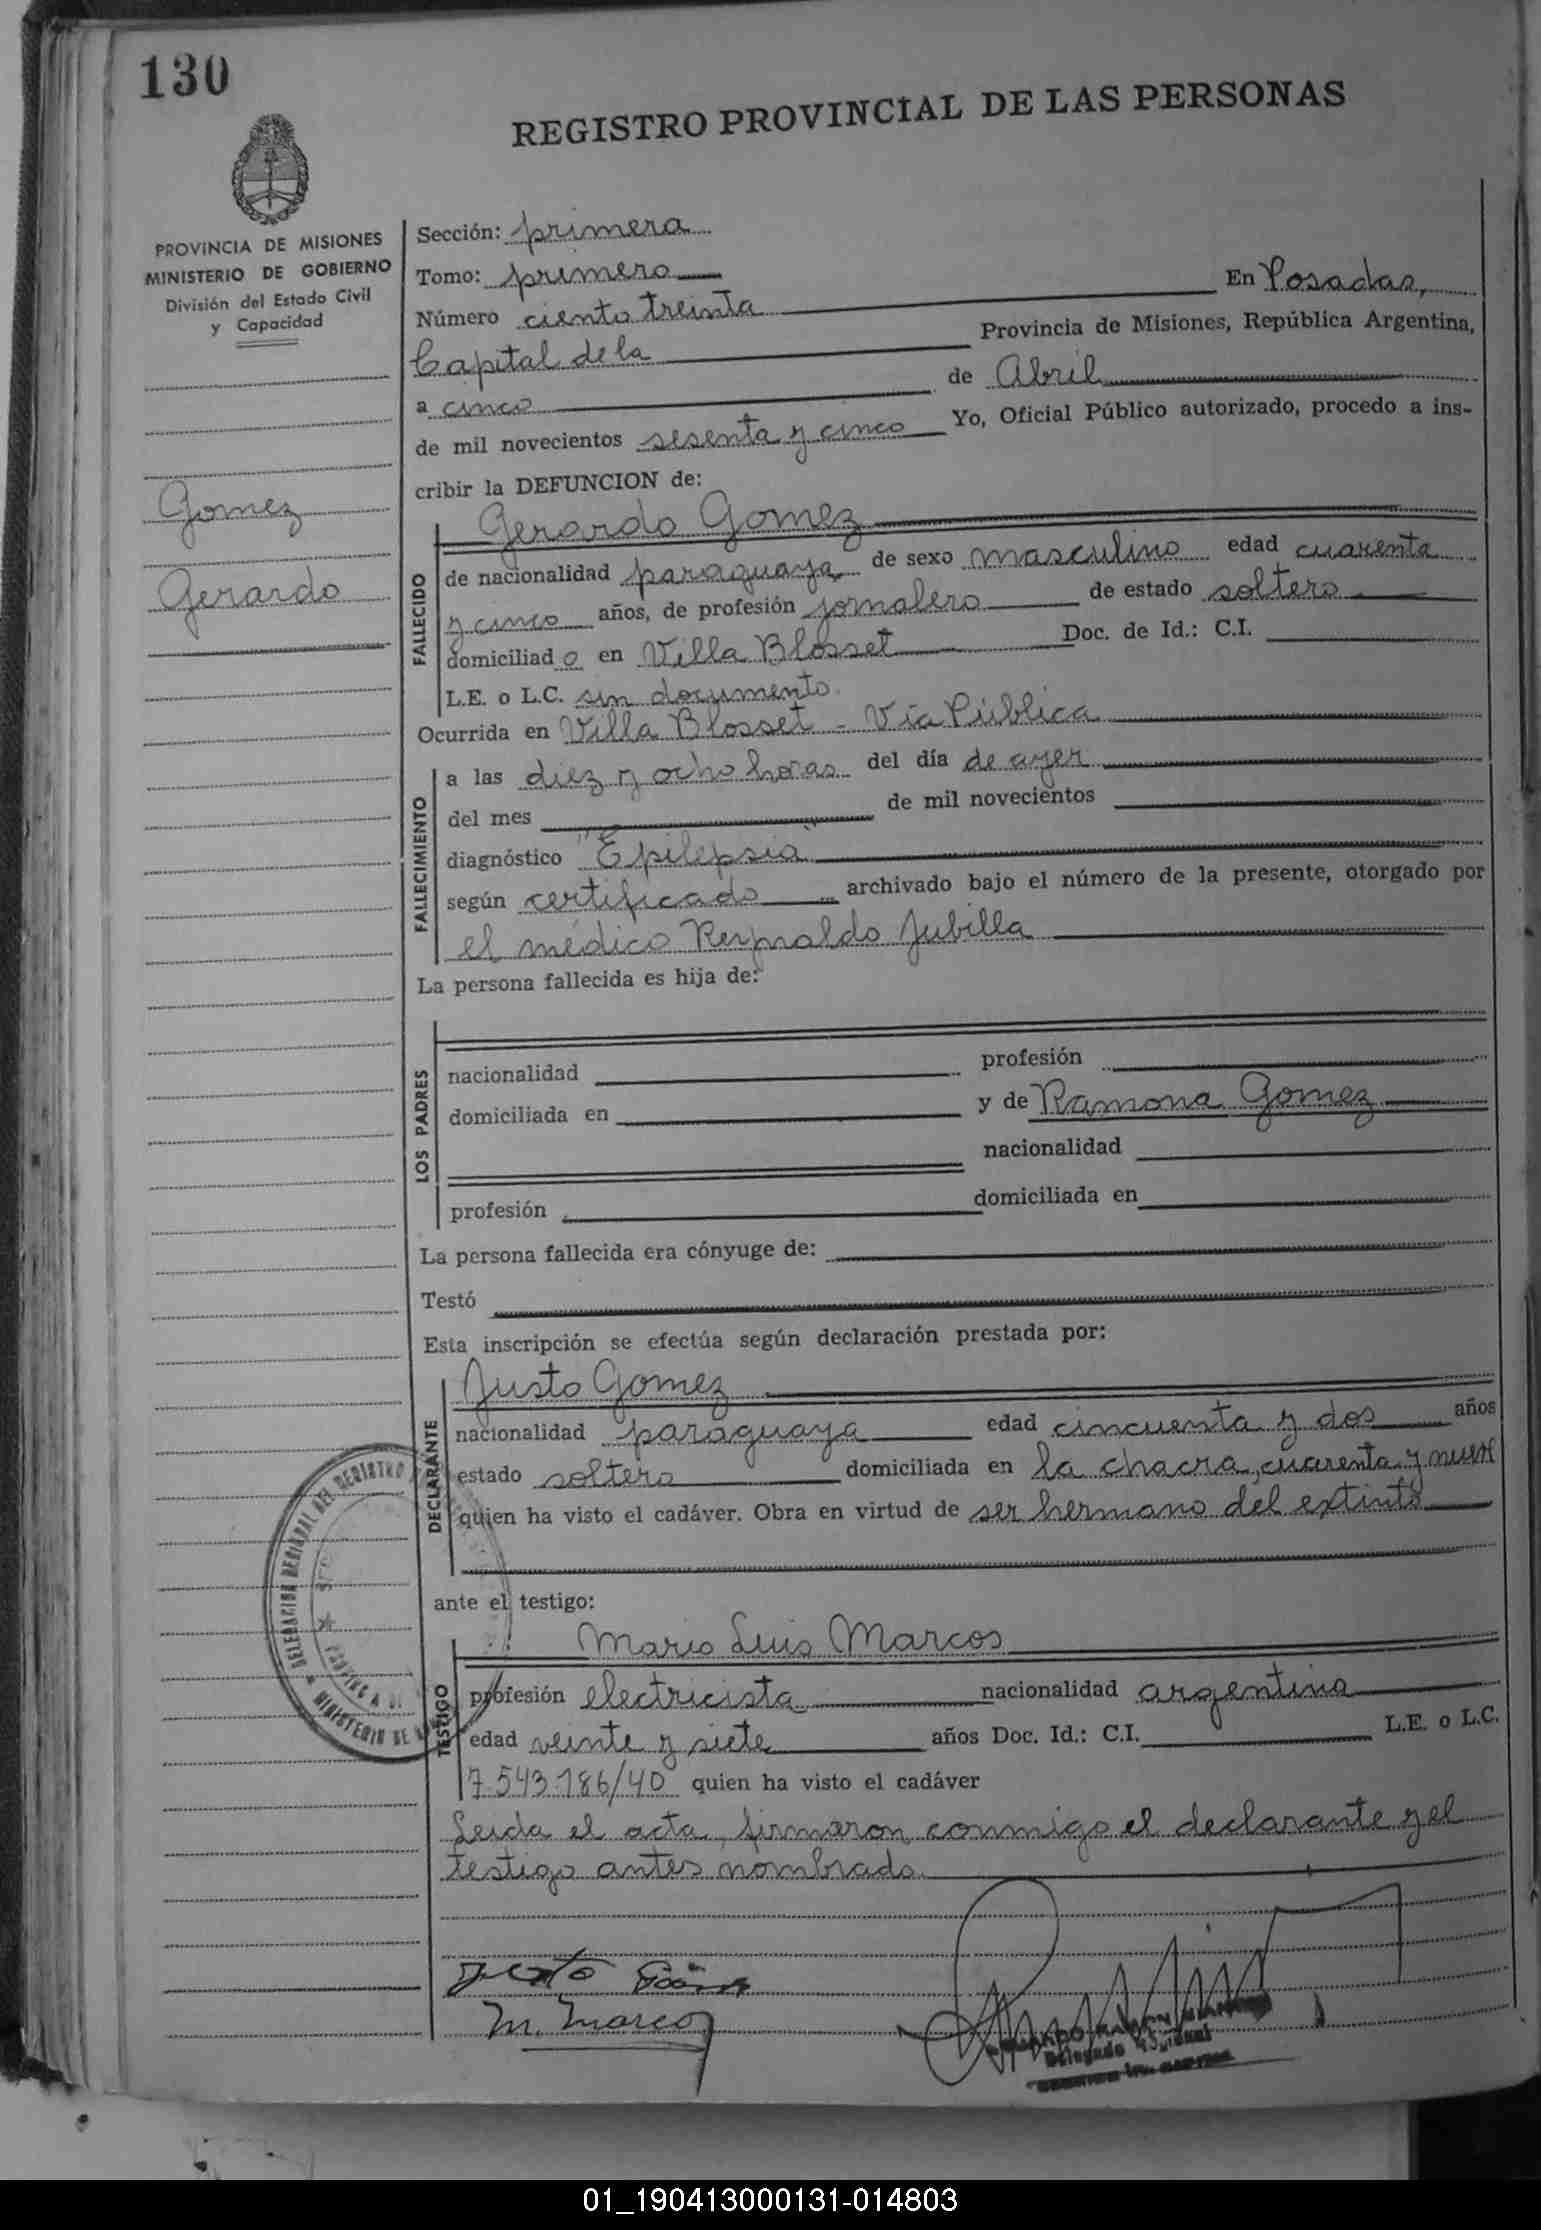 130
REGISTRO PROVINCIAL DE LAS PERSONAS
PROVINCIA DE MISIONES
MINISTERIO DE GOBIERNO
División del Estado Civil
y Capacidad
Gomez
Gerardo
Sección: primera
Tomo: primero
Número ciento treinta En Posadas,
Capital de la Provincia de Misiones, República Argentina,
a cinco de Abril
de mil novecientos sesenta y cinco Yo, Oficial Público autorizado, procedo a ins-
cribir la DEFUNCION de:
FALLECIDO
Gerardo Gomez
de nacionalidad paraguaya de sexo masculino edad cuarenta
y cinco años, de profesión jornalero de estado soltero
domiciliado en Villa Blosset Doc. de Id.: C.I.
L.E. o L.C. sin documento.
Ocurrida en Villa Blosset - Vía Pública
FALLECIMIENTO
a las diez y ocho horas del día de ayer
del mes de mil novecientos
diagnóstico "Epilepsia"
según certificado archivado bajo el número de la presente, otorgado por
el médico Reynaldo Jubilla
La persona fallecida es hija de:
LOS PADRES
nacionalidad profesión
domiciliada en y de Ramona Gomez
nacionalidad
profesión domiciliada en
La persona fallecida era cónyuge de:
Testó
Esta inscripción se efectúa según declaración prestada por:
DECLARANTE
Justo Gomez
nacionalidad paraguaya edad cincuenta y dos años
estado soltero domiciliada en la chacra, cuarenta y nueve
quien ha visto el cadáver. Obra en virtud de ser hermano del extinto
ante el testigo:
TESTIGO
Mario Luis Marcos
profesión electricista nacionalidad argentina
edad veinte y siete años Doc. Id.: C.I. L.E. o L.C.
7.543.186/40 quien ha visto el cadáver
Leida el acta, firmaron conmigo el declarante y el
testigo antes nombrado.
Justo
M. Marcos
Delegado
DELEGACION REGIONAL DEL REGISTRO
MINISTERIO DE
01_190413000131-014803